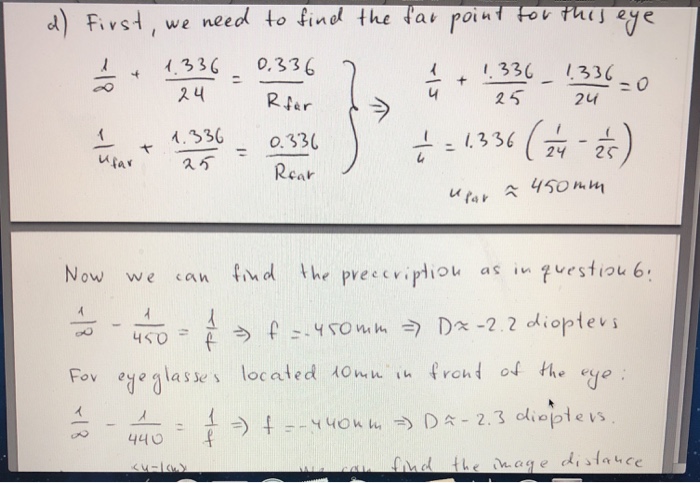 d) First, we need to find the far point for this eye
1/∞ + 1.336/24 = 0.336/R far
1/u far + 1.336/25 = 0.336/R far
⇒
1/u + 1.336/25 - 1.336/24 = 0
1/u = 1.336 (1/24 - 1/25)
u far ≈ 450 mm
Now we can find the prescription as in question 6:
1/∞ - 1/450 = 1/f ⇒ f = -450mm ⇒ D ≈ -2.2 diopters
For eyeglasses located 10mm in front of the eye:
1/∞ - 1/440 = 1/f ⇒ f = -440mm ⇒ D ≈ -2.3 diopters.
can find the image distance